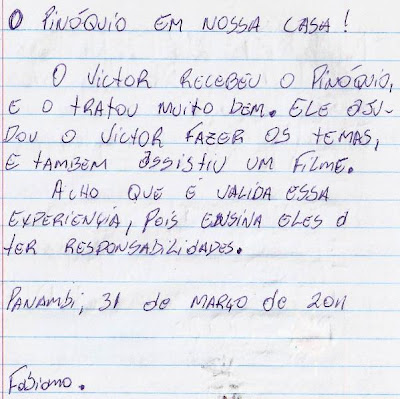 O PINÓQUIO EM NOSSA CASA!
O VICTOR RECEBEU O PINÓQUIO,
E O TRATOU MUITO BEM. ELE AJU-
DOU O VICTOR FAZER OS TEMAS,
E TAMBEM ASSISTIU UM FILME.
ACHO QUE É VALIDA ESSA
EXPERIENÇIA, POIS ENSINA ELES A
TER RESPONSABILIDADES.
PANAMBI, 31 de MARÇO de 2011
Fabiano.